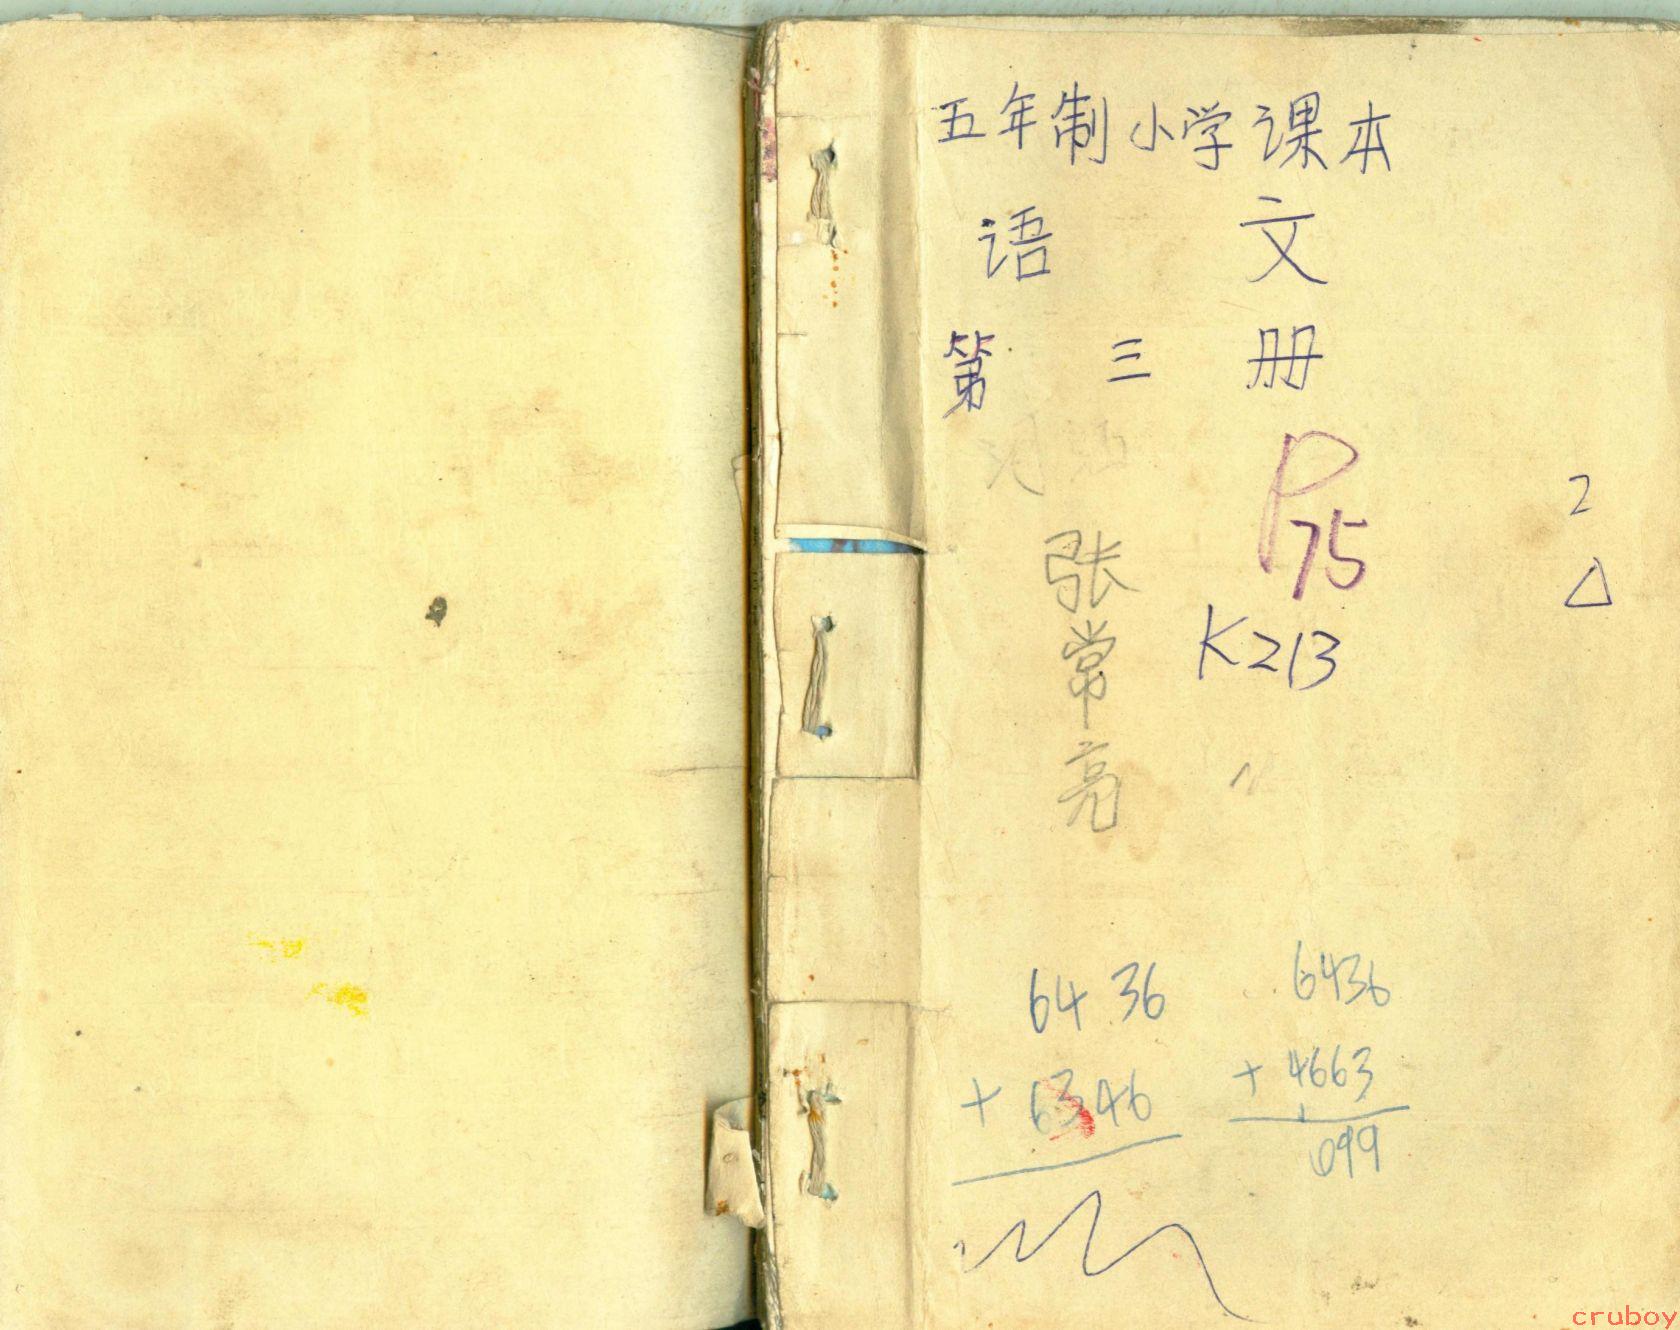 五年制小学课本
语 文
第 三 册
P75
2
张常亮
K213
6436
+ 6346
6436
+ 4663
1099
cruboy